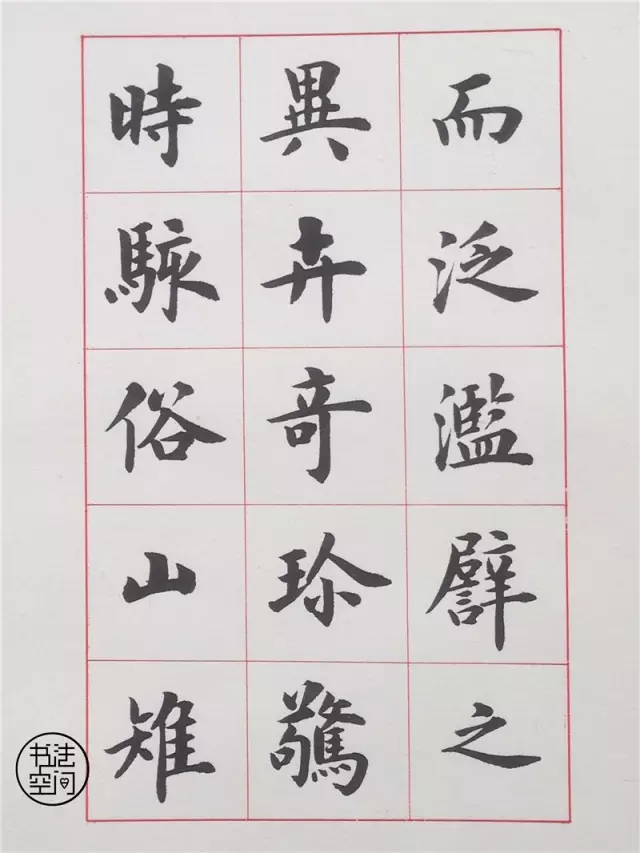 而泛濫譬之
異卉奇珍驚
時駭俗山雉
书法空间